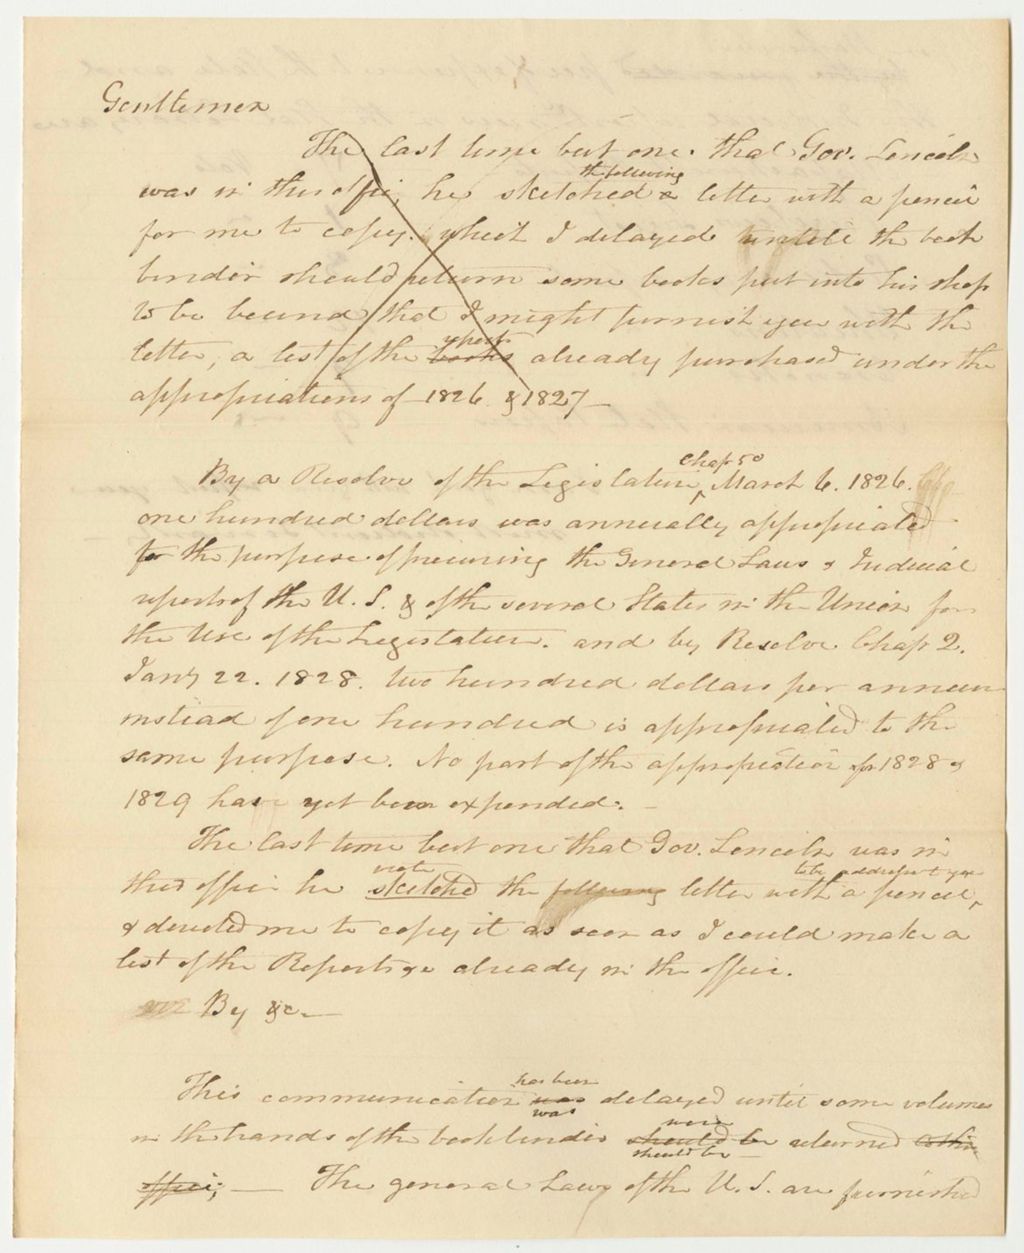 Gentlemen
The last time but one that Gov. Lincoln
was in this office, he sketched the following a letter with a pencil
for me to copy. which I delayed untill the book
binder should return some books put into his shop
to be bound that I might furnish you with the
letter, a list of the books reports already purchased under the
appropriations of 1826 & 1827 —
By a Resolve of the Legislature, Chap 50 March 6. 1826.
one hundred dollars was annually appropriated
for the purpose of procuring the General Laws & Judicial
reports of the U. S. & of the several States in the Union for
the Use of the Legislature. and by Resolve Chap 2.
Jany 22. 1828. two hundred dollars per annum
instead of one hundred is appropriated to the
same purpose. No part of the appropriation for 1828 &
1829 have yet been expended. —
The last time but one that Gov. Lincoln was in
this office he sketched wrote the following letter to be addressed to you with a pencil,
& directed me to copy it as soon as I could make a
list of the Reports &c already in the office.
By &c —
This communication was has been was delayed until some volumes
in the hands of the bookbinder should be were should be returned to this
office; — The general Laws of the U. S. are furnished